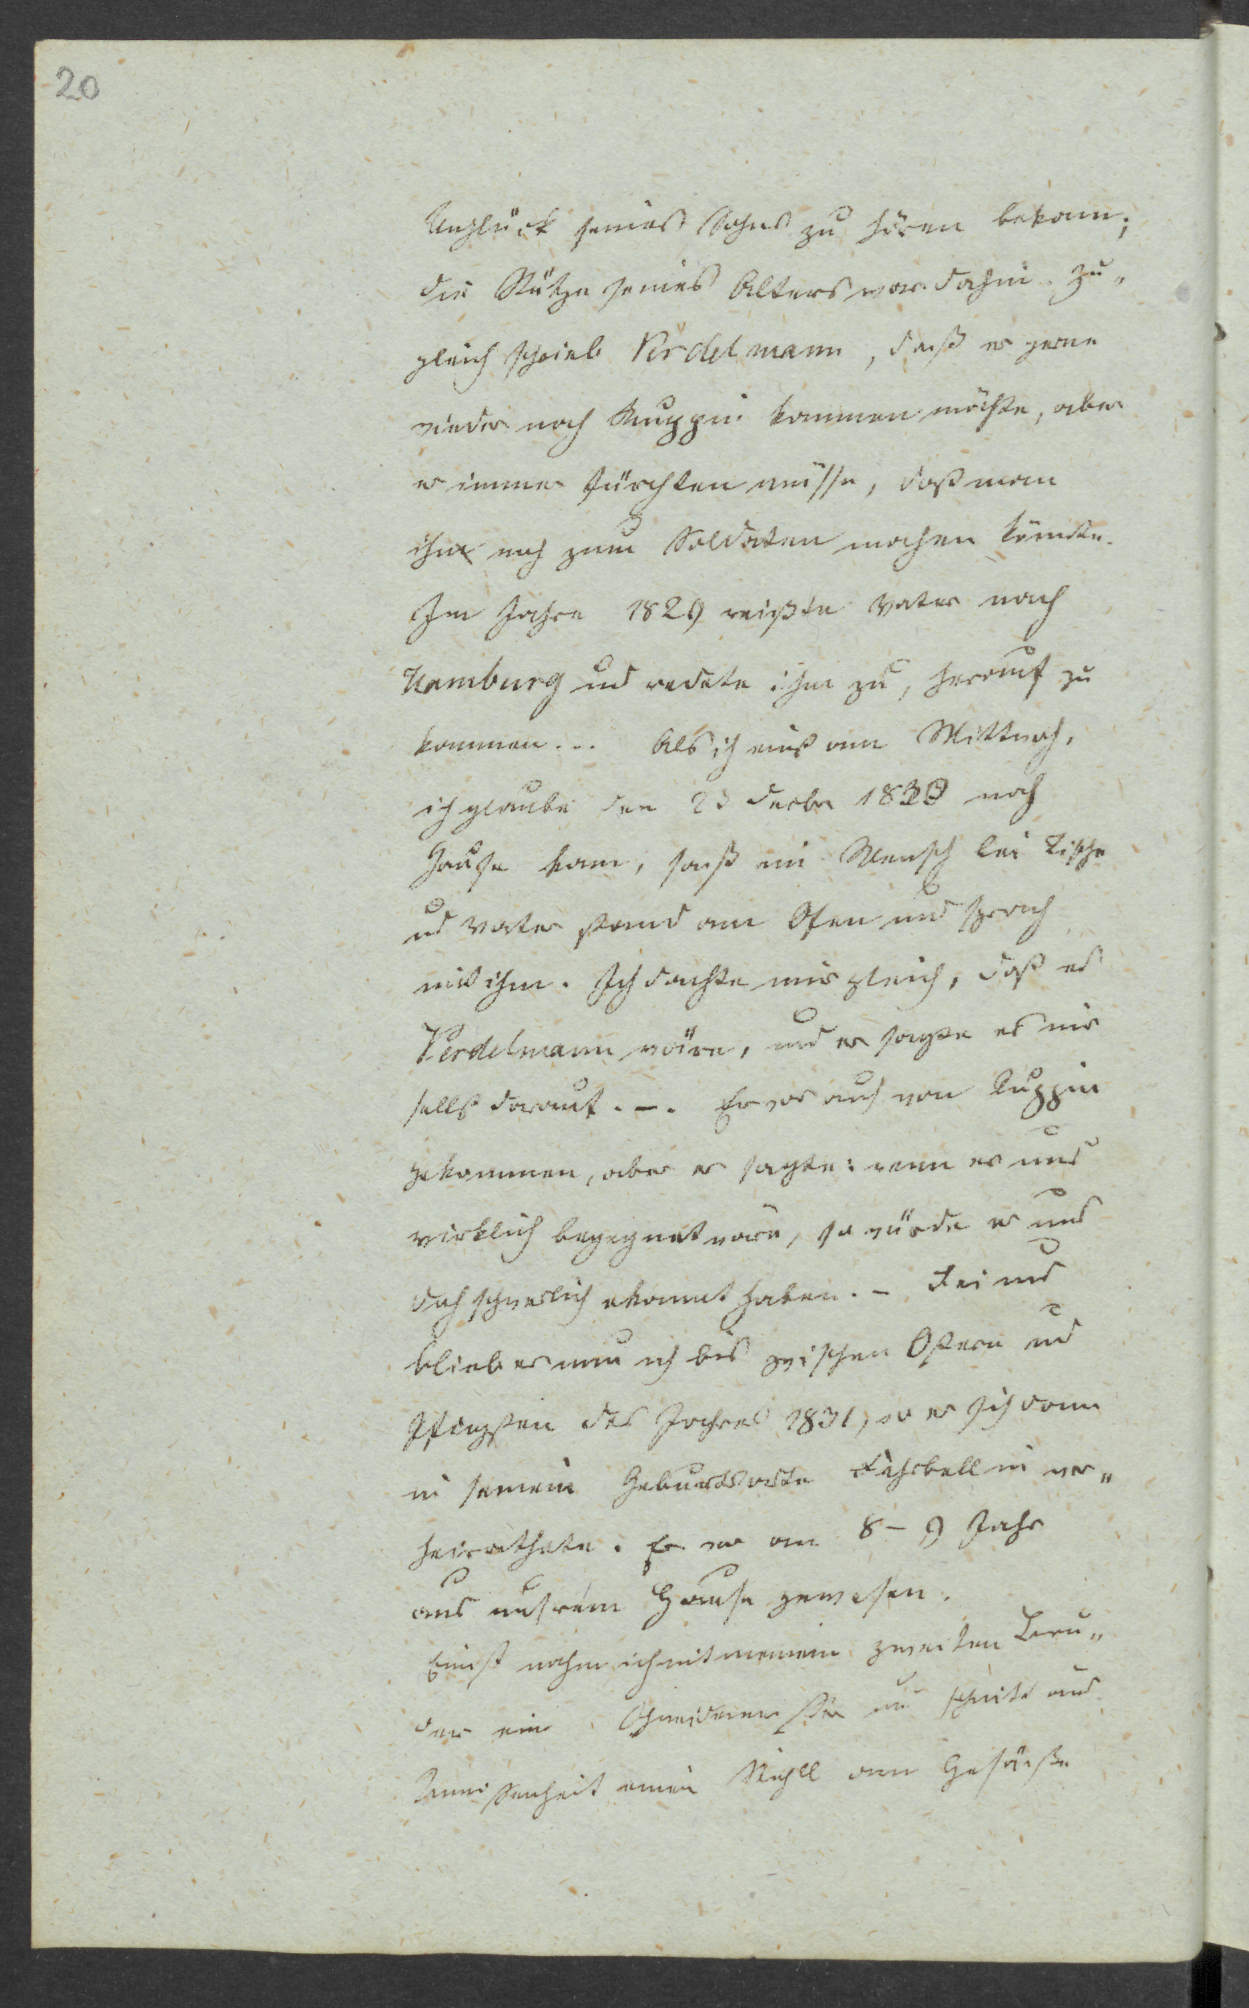 20
Unglück seines Sohns zu hören bekam;
die Stütze seines Alters war dahin. Zu„
gleich schrieb Verdelmann, daß er gerne
wieder nach Ruppin kommen möchte, aber
er immer fürchten müsse, daß man
ihn noch zum Soldaten machen könnte.
Im Jahre 1829 reißte Vater nach
Hamburg und redete ihm zu, herauf zu
kommen... Als ich eins am Mittwoch,
ich glaube den 23 Decbr 1830 nach
Hause kam, saß ein Mensch bei Tische
und Vater stand am Ofen und sprach
mit ihm. Ich dachte mir gleich, daß es
Verdelmann wäre, und er sagte es mir
selbst darauf. –. Er war auch von Ruppin
gekommen, aber er sagte: wenn er uns
wirklich begegnet wäre, so würde er uns
doch schwerlich erkannt haben. – Bei uns
blieb er nun bis zwischen Ostern und
Pfingsten des Jahres 1831, wo er sich dann
in seinem Geburtsorte Fehrbellin ver„
heirathete. Er war an 8 – 9 Jahr
aus unsrem Hause gewesen.
Einst nahm ich mit meinem zweiten Bru„
der ein und
einen Stuhll am Gesäße